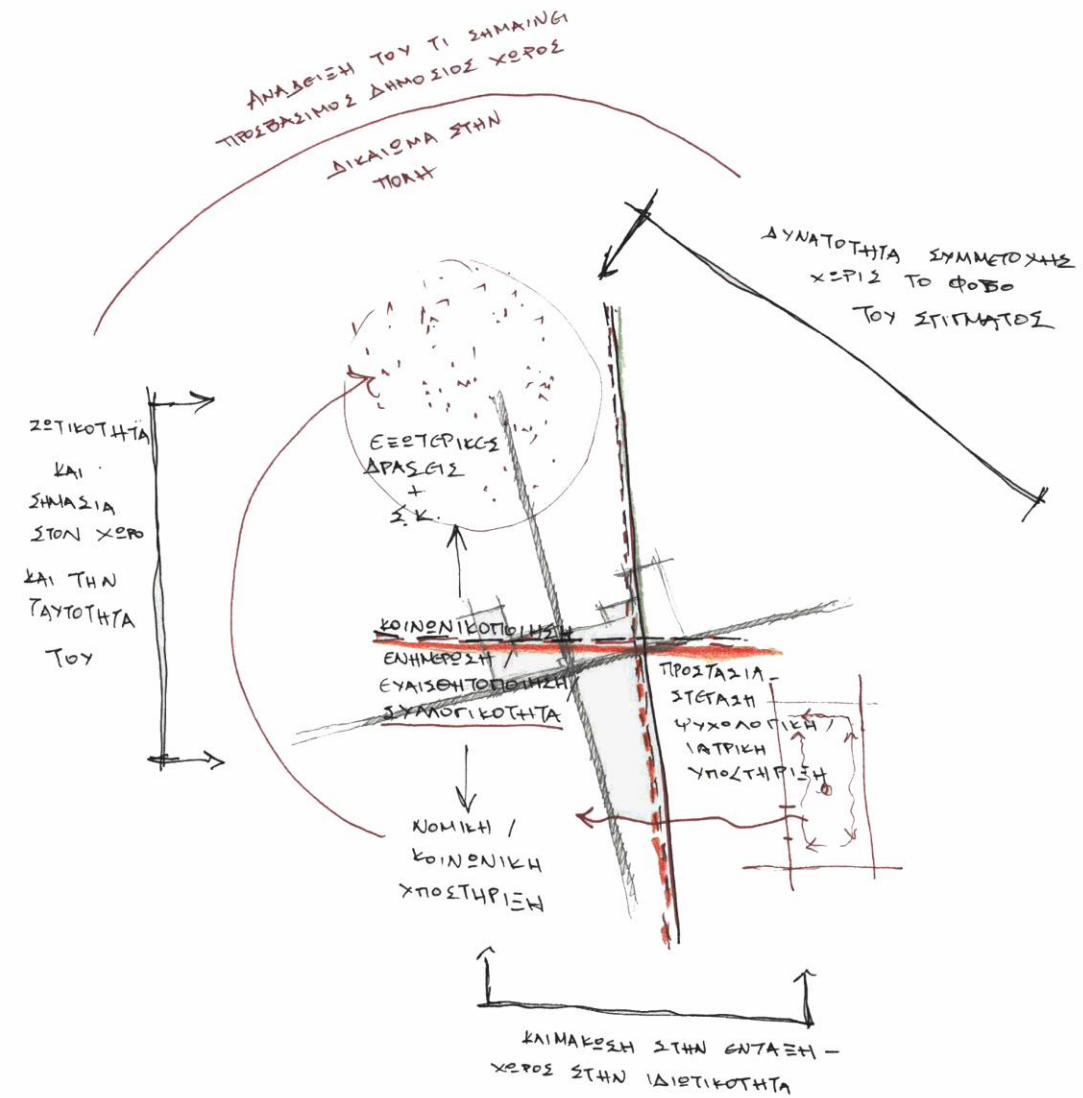 ΑΝΑΔΕΙΞΗ ΤΟΥ ΤΙ ΣΗΜΑΙΝΕΙ
ΠΡΟΣΒΑΣΙΜΟΣ ΔΗΜΟΣΙΟΣ ΧΩΡΟΣ
ΔΙΚΑΙΩΜΑ ΣΤΗΝ
ΠΟΛΗ
ΔΥΝΑΤΟΤΗΤΑ ΣΥΜΜΕΤΟΧΗΣ
ΧΩΡΙΣ ΤΟ ΦΟΒΟ
ΤΟΥ ΣΤΙΓΜΑΤΟΣ
ΖΩΤΙΚΟΤΗΤΑ
ΚΑΙ
ΣΗΜΑΣΙΑ
ΣΤΟΝ ΧΩΡΟ
ΚΑΙ ΤΗΝ
ΤΑΥΤΟΤΗΤΑ
ΤΟΥ
ΕΞΩΤΕΡΙΚΕΣ
ΔΡΑΣΕΙΣ
+
Σ.Κ.
ΚΟΙΝΩΝΙΚΟΠΟΙΗΣΗ
ΕΝΗΜΕΡΩΣΗ /
ΕΥΑΙΣΘΗΤΟΠΟΙΗΣΗ /
ΣΥΛΛΟΓΙΚΟΤΗΤΑ
ΠΡΟΣΤΑΣΙΑ -
ΣΤΕΓΑΣΗ
ΨΥΧΟΛΟΓΙΚΗ /
ΙΑΤΡΙΚΗ
ΥΠΟΣΤΗΡΙΞΗ
ΝΟΜΙΚΗ /
ΚΟΙΝΩΝΙΚΗ
ΥΠΟΣΤΗΡΙΞΗ
ΚΛΙΜΑΚΩΣΗ ΣΤΗΝ ΕΝΤΑΞΗ -
ΧΩΡΟΣ ΣΤΗΝ ΙΔΙΩΤΙΚΟΤΗΤΑ